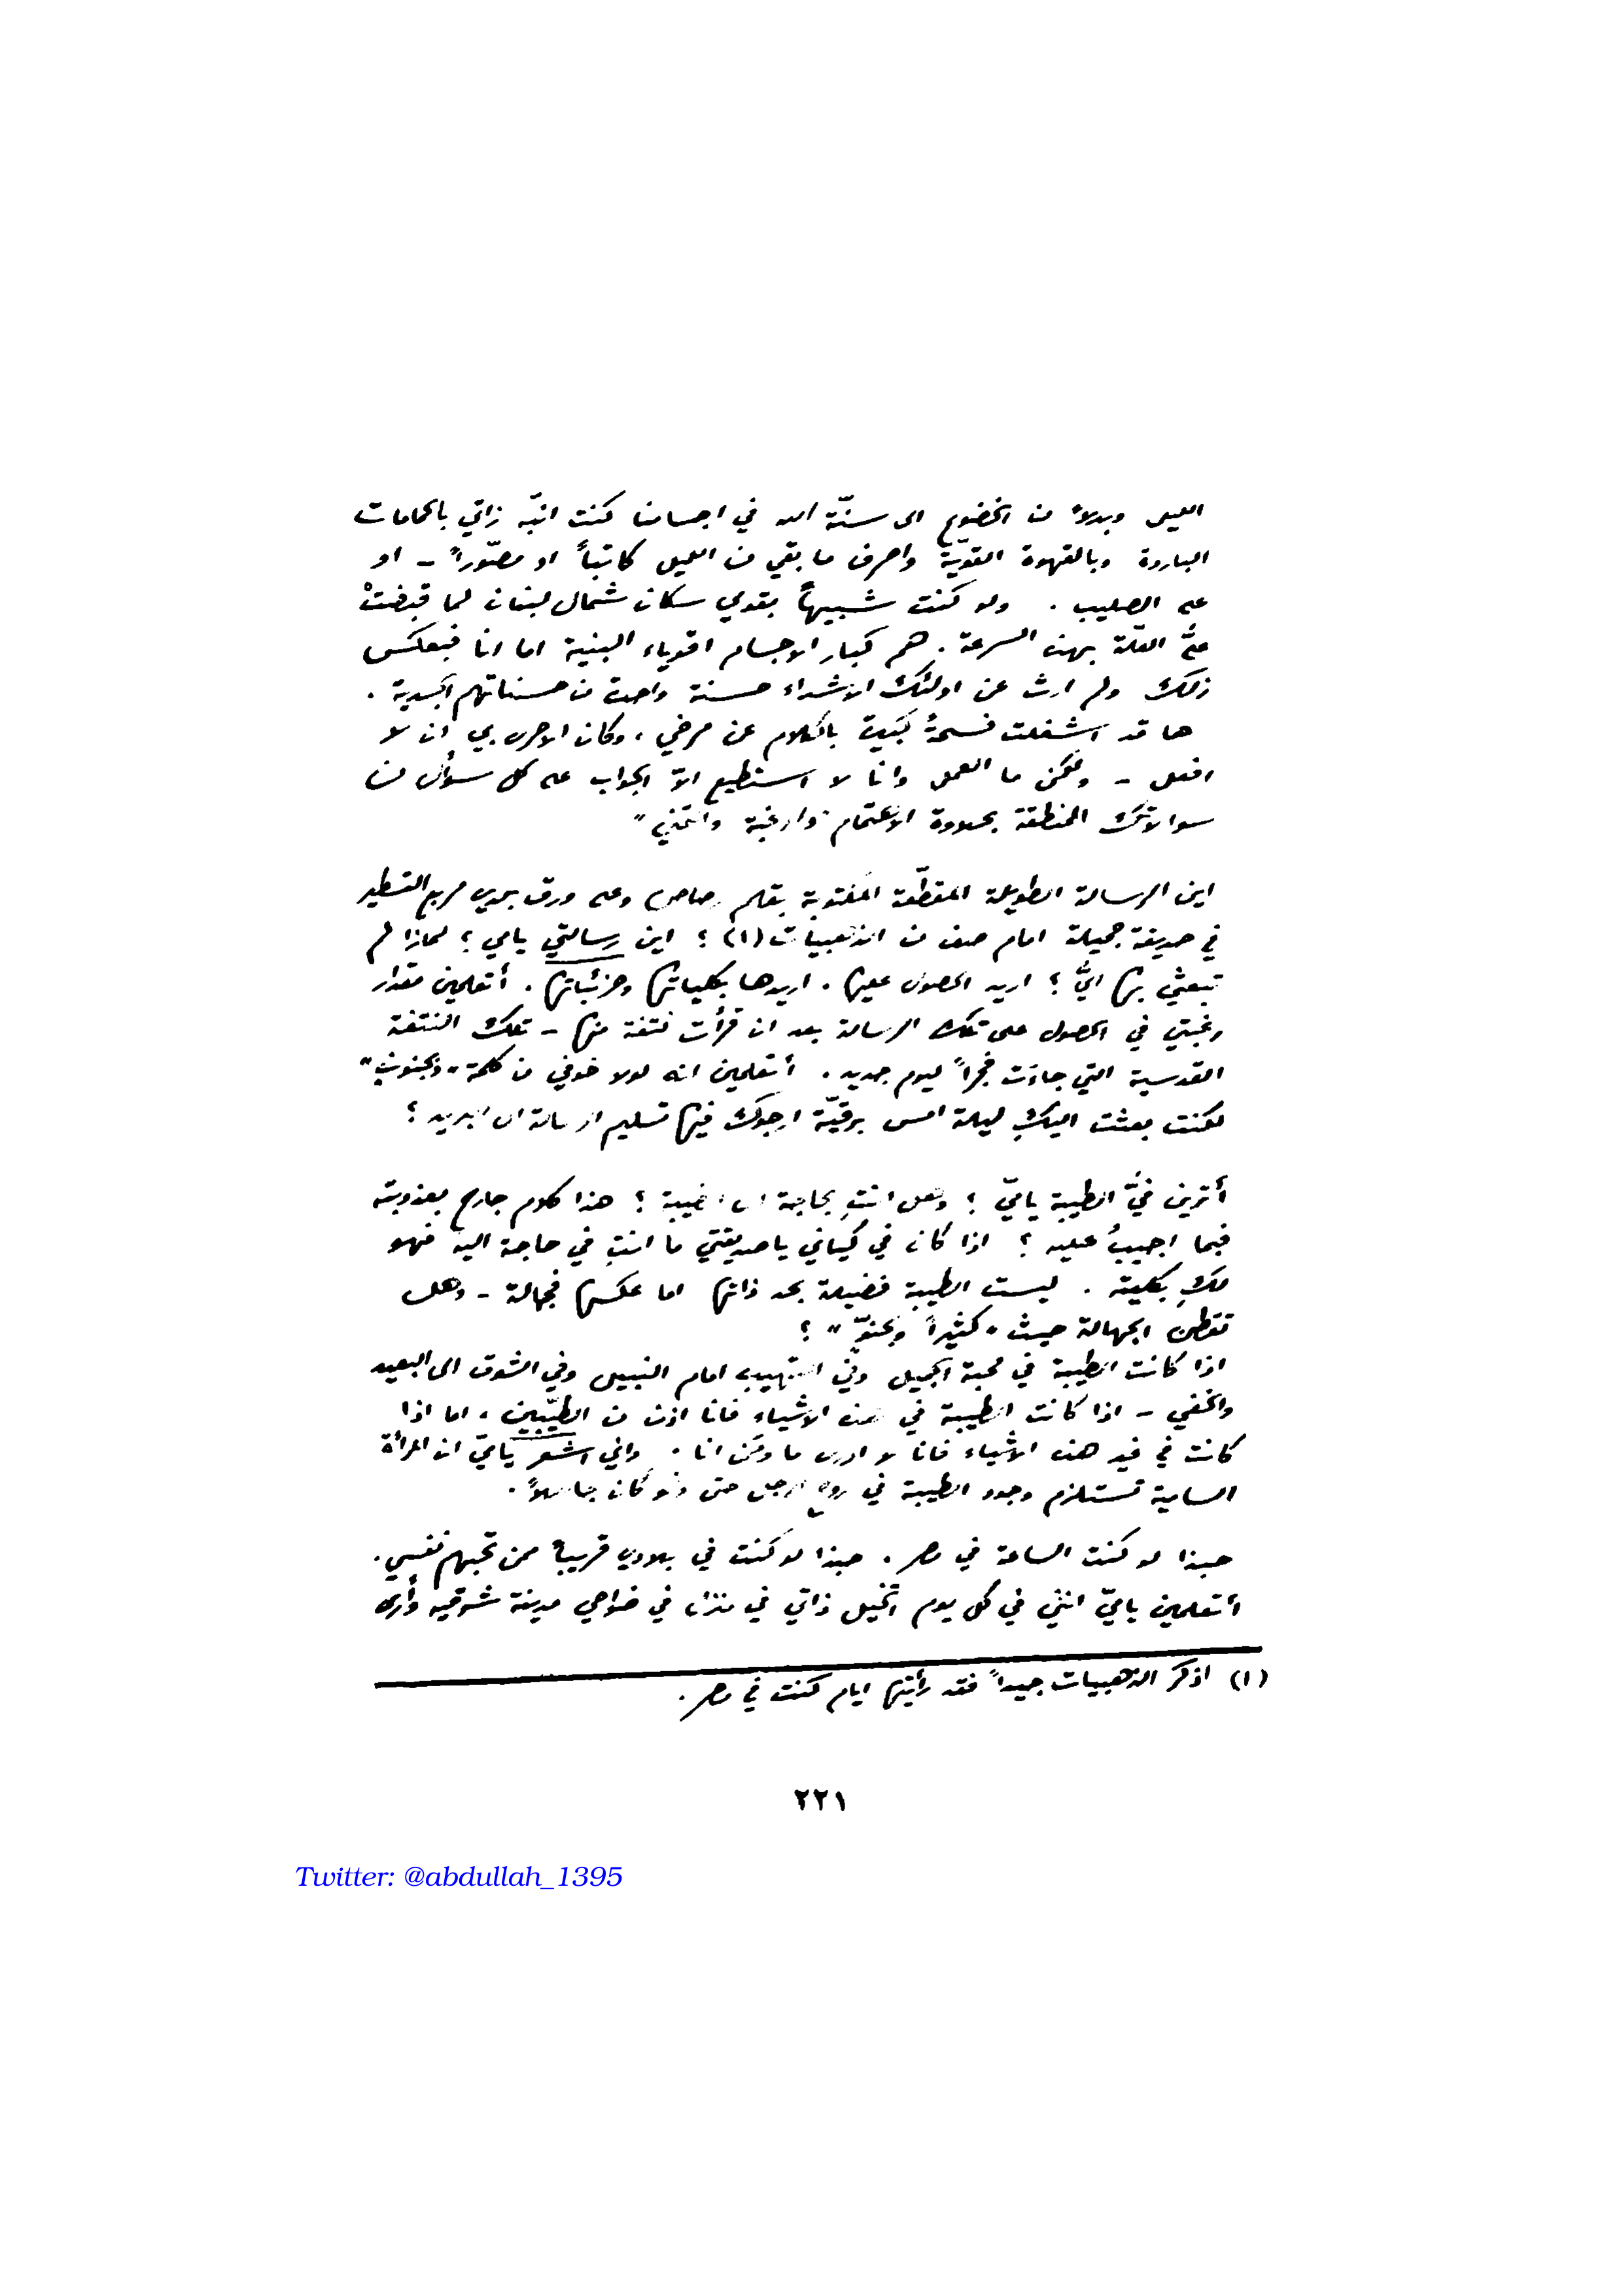 الليل وبدلاً من الخضوع الى سنّة الله في اجسامنا كنت انبّه ذاتي بالحمامات
الباردة وبالقهوة القويّة واصرف ما بقي من الليل كاتباً او مصّوراً – او
على الصليب . ولو كنت شبيهاً بقومي سكان شمال لبنان لما قبضتْ
عليَّ العلّة بهذه السرعة . هم كبار الاجسام اقوياء البنية اما انا فبعكس
ذلك ولم ارث عن اولئك الاشداء حسنة واحدة من حسناتهم الجسدية .
ها قد اشغلت فسحةً كبيرة بالكلام عن مرضي ، وكان الاحرى بي ان لا
افعل – ولكن ما العمل وانا لا استطيع الاّ الجواب على كل سؤال من
سوالاتك المنطقة بحلاوة الاهتمام والرغبة والتمني "
اين الرسالة الطويلة المقطّعة المكتوبة بقلم رصاص وعلى ورق بلدي مربع التسطير
في حديقة جميلة امام صف من الذهبيات (١) ؟ اين رسالتي يامي ؟ لماذا لم
تبعثي بها اليَّ ؟ اريد الحصول عليها . اريدها بكلياتها وجزئياتها . أتعلمين مقدار
رغبتي في الحصول على تلك الرسالة بعد ان قرأت نتفة منها – تلك النتفة
القدسية التي جاءت فجراً ليوم جديد . أتعلمين انه لولا خوفي من كلمة " وبجنون "
لكنت بعثت اليكِ ليلة امس برقيّة ارجوك فيها تسليم الرسالة الى البريد ؟
أترين فيَّ الطيبة ياميّ ؟ وهل انتِ بحاجة الى الطيبة ؟ هذا كلام جارح بعذوبته
فبما اجيبُ عليه ؟ اذا كان في كياني ياصديقتي ما انتِ في حاجة اليه فهو
لكِ بكليته . ليست الطيبة فضيلة بحد ذاتها اما عكسها فجهالة – وهل
تقطن الجهالة حيث " كثيراً وبحنوّ " ؟
اذا كانت الطيبة في محبة الجميل وفي التهيب امام النبيل وفي الشوق الى البعيد
والخفي – اذا كانت الطيبة في هذه الاشياء فانا اذن من الطيّبين ، اما اذا
كانت في غير هذه الاشياء فانا لا ادري ما ومَن انا . واني اشعر ياميّ ان المرأة
السامية تستلزم وجود الطيبة في روح الرجل حتى ولو كان جاهلاً .
حبذا لو كنت الساعة في مصر . حبذا لو كنت في بلادي قريباً ممن تحبهم نفسي .
أتعلمين ياميّ انني في كل يوم اتخيل ذاتي في منزل في ضواحي مدينة شرقيه وأرى
(١) اذكر الذهبيات جيداً فقد رأيتها ايام كنت في مصر .
٢٢١
Twitter: @abdullah_1395